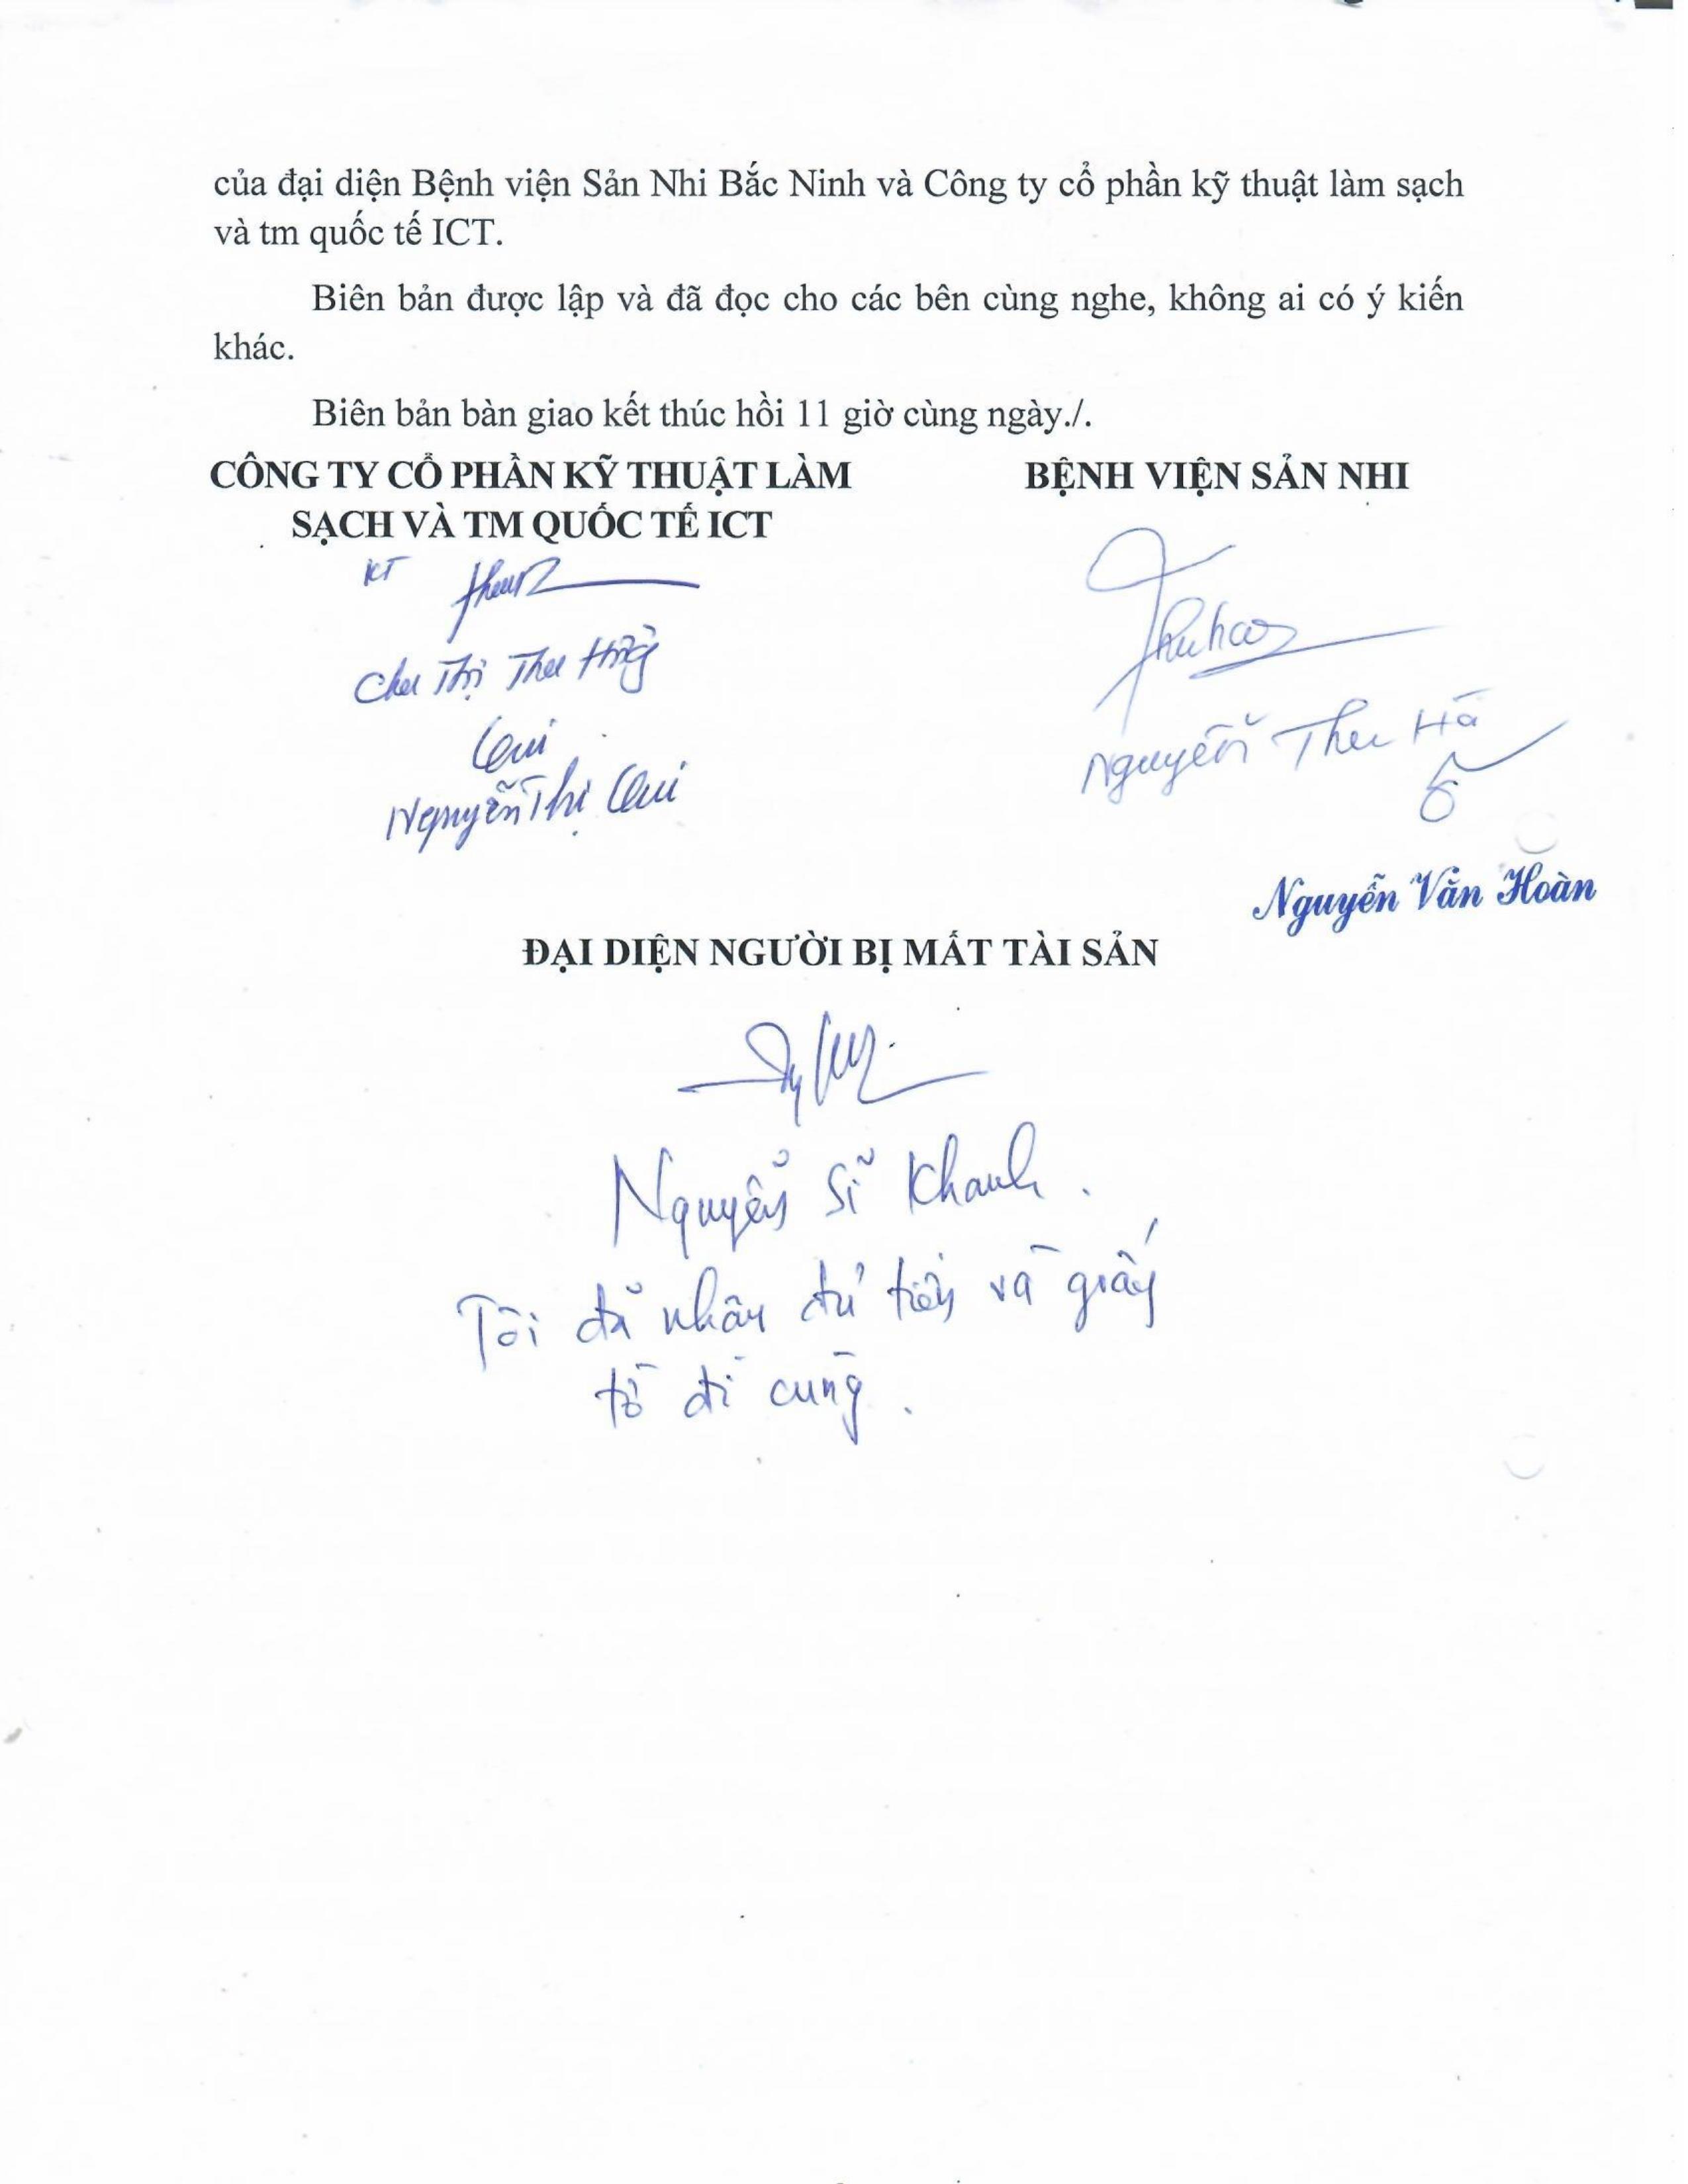 của đại diện Bệnh viện Sản Nhi Bắc Ninh và Công ty cổ phần kỹ thuật làm sạch
và tm quốc tế ICT.
Biên bản được lập và đã đọc cho các bên cùng nghe, không ai có ý kiến
khác.
Biên bản bàn giao kết thúc hồi 11 giờ cùng ngày./.
CÔNG TY CỔ PHẦN KỸ THUẬT LÀM
SẠCH VÀ TM QUỐC TẾ ICT
BỆNH VIỆN SẢN NHI
KT
Chu Thị Thu Hằng
Qui
Nguyễn Thị Qui
Nguyễn Thu Hà
Nguyễn Văn Hoàn
ĐẠI DIỆN NGƯỜI BỊ MẤT TÀI SẢN
Nguyễn Sĩ Khanh.
Tôi đã nhận đủ tiền và giấy
tờ đi cùng.